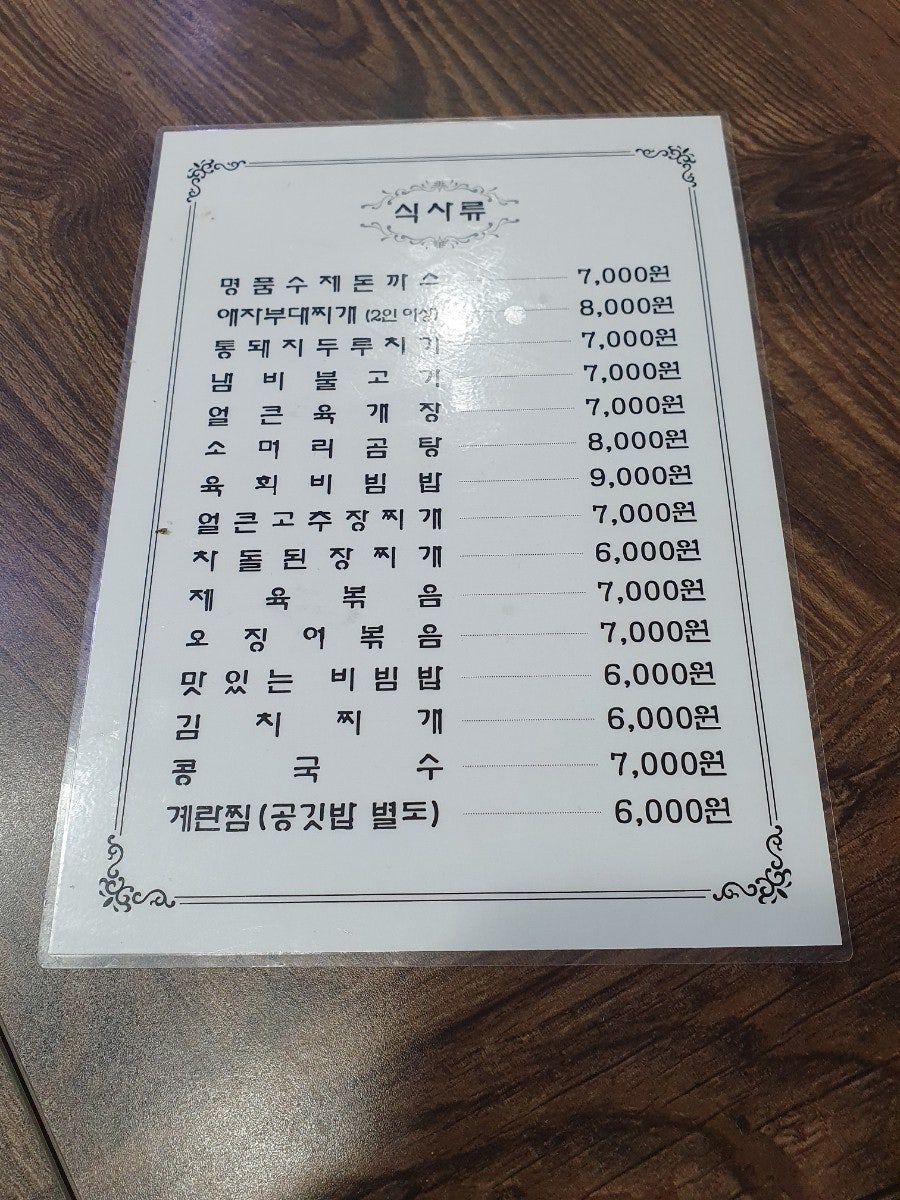 식사류
명품수제돈까스 7,000원
애자부대찌개 (2인 이상) 8,000원
통돼지두루치기 7,000원
냄비불고기 7,000원
얼큰육개장 7,000원
소머리곰탕 8,000원
육회비빔밥 9,000원
얼큰고추장찌개 7,000원
차돌된장찌개 6,000원
제육볶음 7,000원
오징어볶음 7,000원
맛있는 비빔밥 6,000원
김치찌개 6,000원
콩국수 7,000원
계란찜(공깃밥 별도) 6,000원